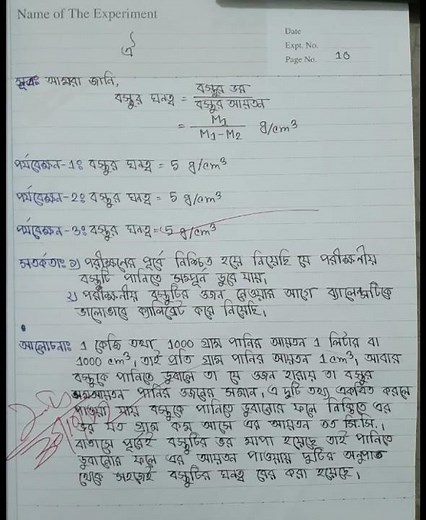 Name of The Experiment
Date
Expt. No.
Page No. 10
সূত্রঃ আমরা জানি,
বস্তুর ঘনত্ব = বস্তুর ভর / বস্তুর আয়তন
= M₁ / M₁-M₂ g/cm³
পর্যবেক্ষন-1ঃ বস্তুর ঘনত্ব = 5 g/cm³
পর্যবেক্ষন-2ঃ বস্তুর ঘনত্ব = 5 g/cm³
পর্যবেক্ষন-3ঃ বস্তুর ঘনত্ব = 5 g/cm³
সতর্কতাঃ ১) পরীক্ষনের পূর্বে নিশ্চিত হয়ে নিয়েছি যে পরীক্ষনীয়
বস্তুটি পানিতে সম্পূর্ন ডুবে যায়।
২) পরীক্ষনীয় বস্তুটির ওজন নেওয়ার আগে ব্যালেন্সটিকে
ভালোভাবে ক্যালিব্রেট করে নিয়েছি।
আলোচনাঃ 1 কেজি তথা 1000 গ্রাম পানির আয়তন 1 লিটার বা
1000 cm³, তাই প্রতি গ্রাম পানির আয়তন 1 cm³, আবার
বস্তুকে পানিতে ডুবালে তা যে ওজন হারায় তা বস্তুর
সমআয়তন পানির ওজনের সমান। এ দুটি তথ্য একত্রিত করলে
পাওয়া যায় বস্তুকে পানিতে ডুবানোর ফলে নিক্তিতে এর
ভর যত গ্রাম কম আসে এর আয়তন তত সি.সি.।
বাতাসে পূর্বেই বস্তুটির ভর মাপা হয়েছে তাই পানিতে
ডুবানোর ফলে এর আয়তন পাওয়ায় দুটির অনুপাত
থেকে সহজেই বস্তুটির ঘনত্ব বের করা হয়েছে।